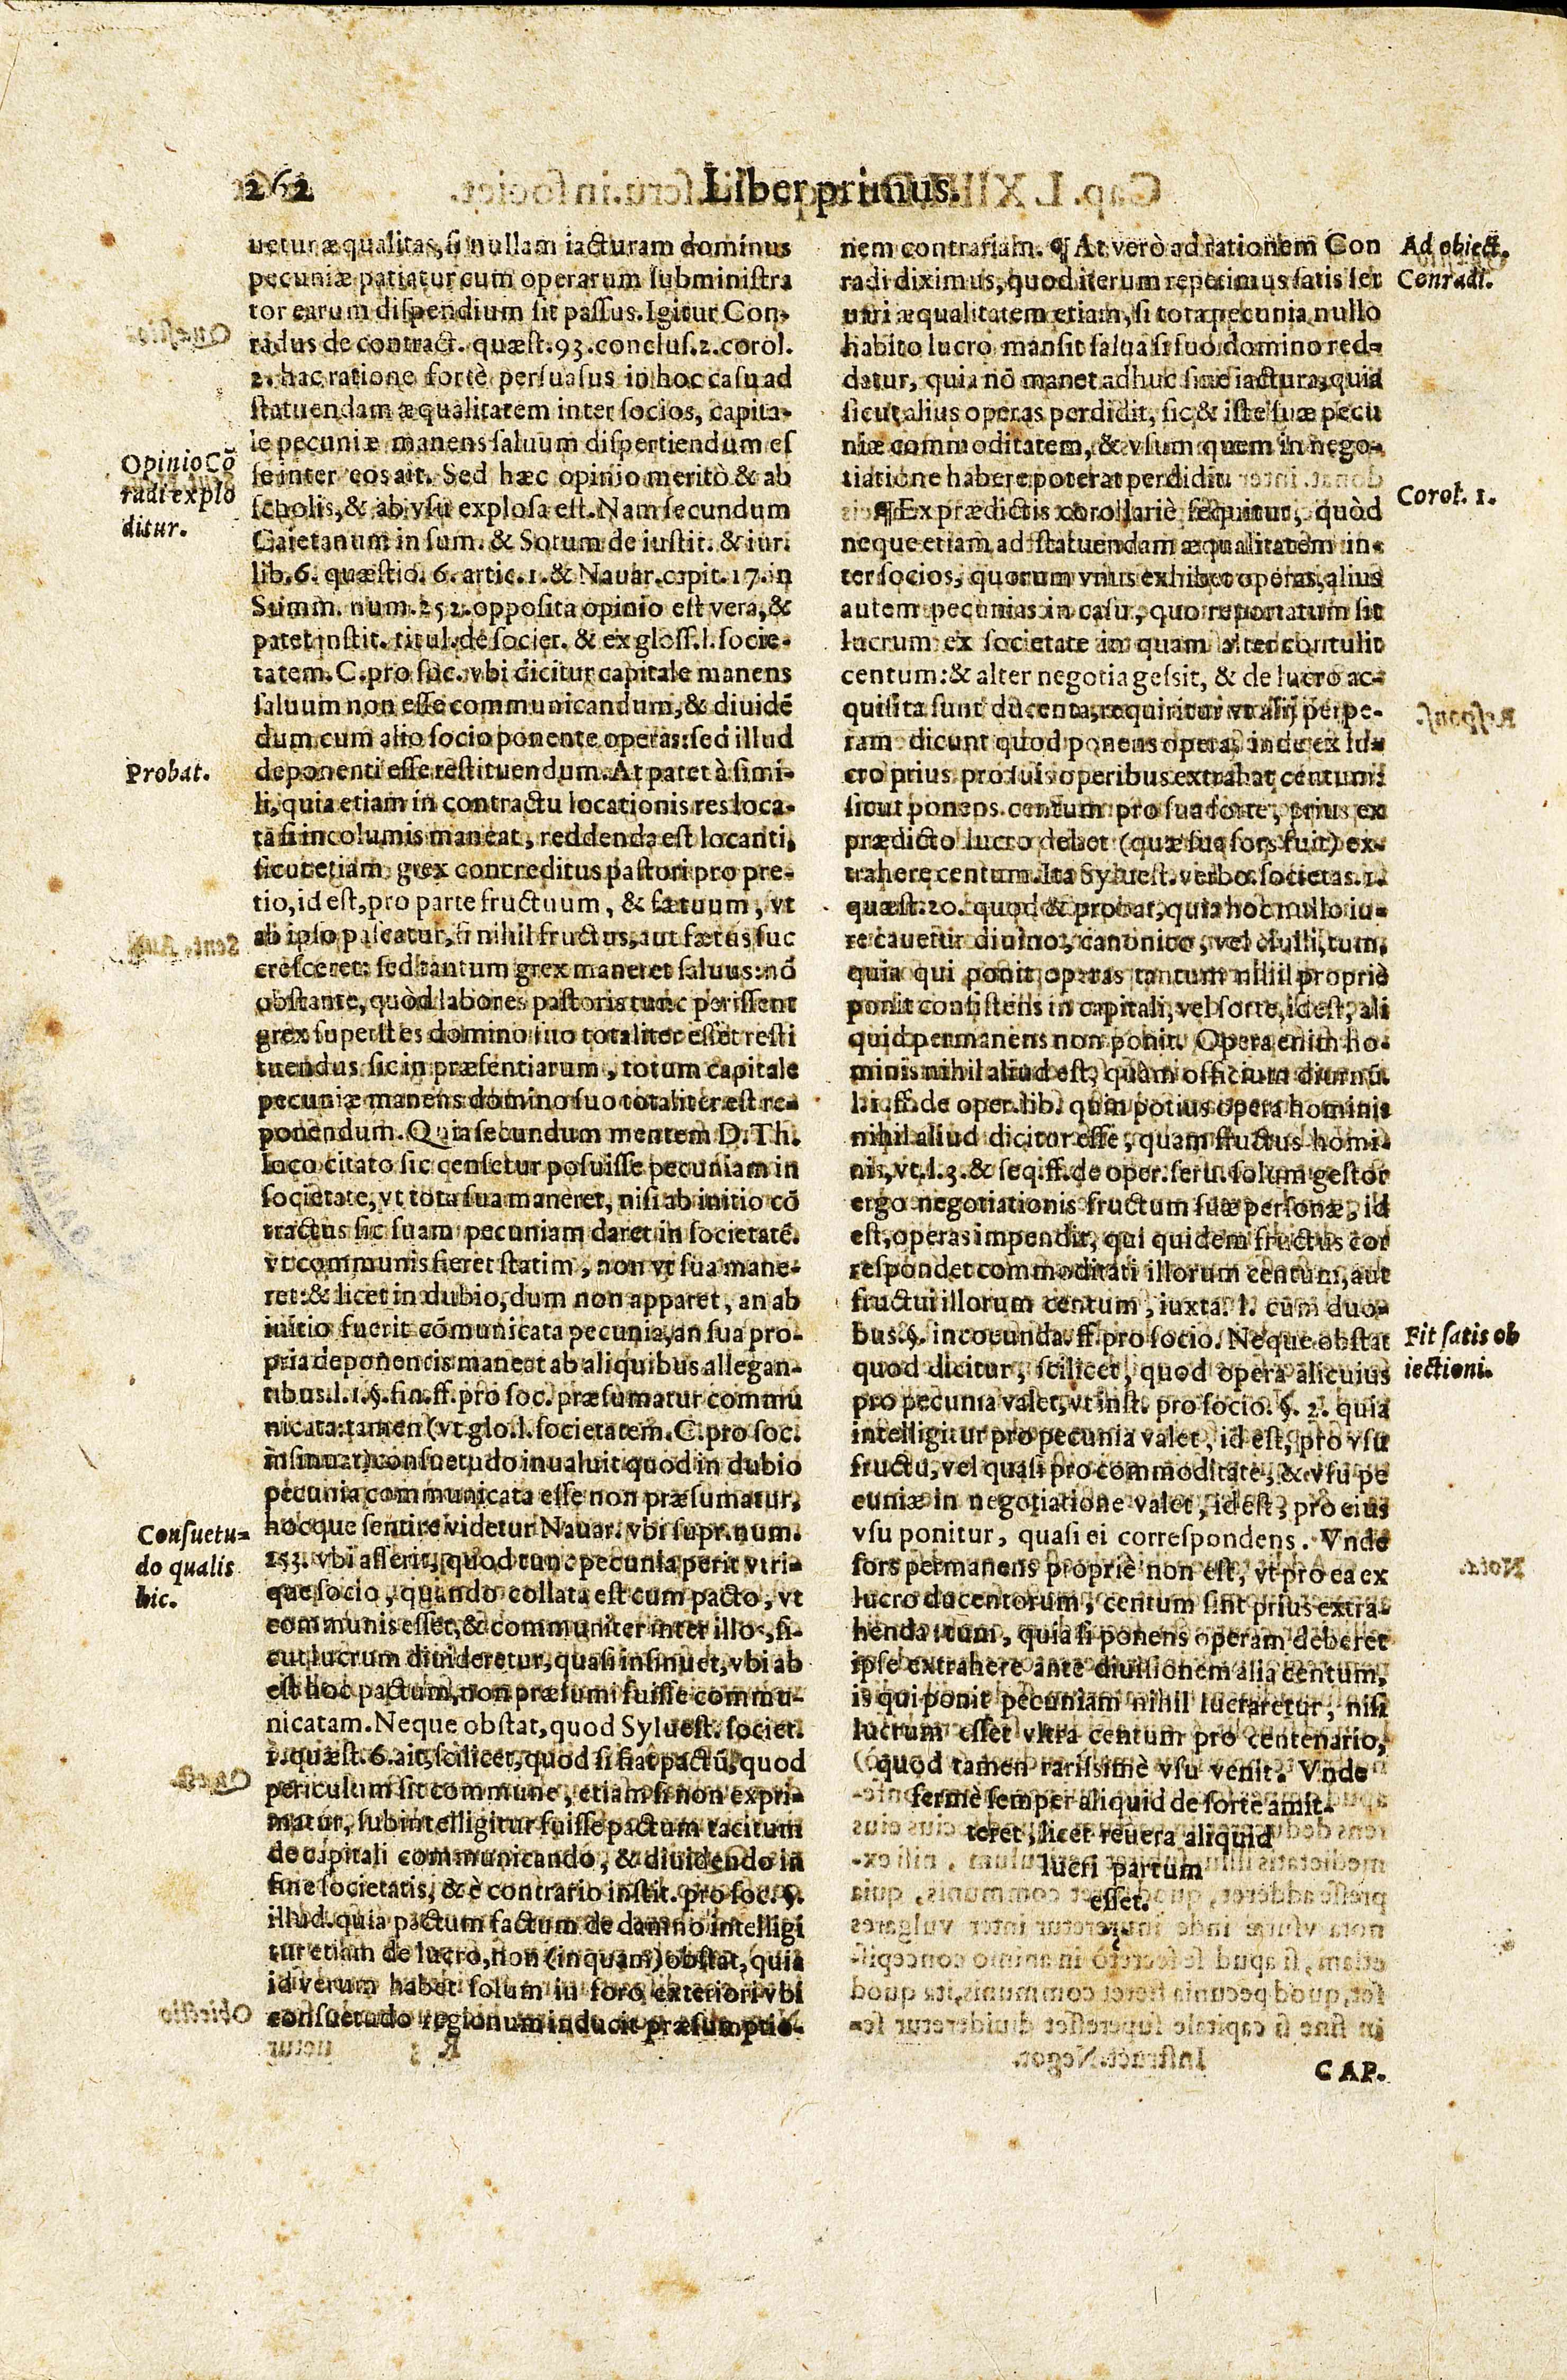 262
Liber primus.
uetur æqualitas, si nullam iacturam dominus
pecuniæ patiatur cum operarum subministra
tor earum dispendium sit passus. Igitur Con-
radus de contract. quæst. 93. conclus. 2. corol.
2. hac ratione fortè persuasus in hoc casu ad
statuendam æqualitatem inter socios, capita-
le pecuniæ manens saluum dispertiendum es
se inter eos ait. Sed hæc opinio meritò & ab
scholis, & ab vsu explosa est. Nam secundum
Caietanum in sum. & Sotum de iustit. & iur.
lib. 6. quæstio. 6. artic. 1. & Nauar. capit. 17. in
Summ. num. 252. opposita opinio est vera, &
patet instit. titul. de societ. & ex gloss. l. socie-
tatem. C. pro soc. vbi dicitur capitale manens
saluum non esse communicandum, & diuidē
dum cum alio socio ponente operas: sed illud
deponenti esse restituendum. At patet à simi-
li, quia etiam in contractu locationis res loca-
ta si incolumis maneat, reddenda est locanti,
sicut etiam grex concreditus pastori pro pre-
tio, id est, pro parte fructuum, & fætuum, vt
ab ipso pascatur, si nihil fructus, aut fætus suc
cresceret: sed tantum grex maneret saluus: nō
obstante, quòd labores pastoris tunc perissent
grex superstes domino suo totaliter esset resti
tuendus sic in præsentiarum, totum capitale
pecuniæ manens domino suo totaliter est re-
ponendum. Quia secundum mentem D. Th.
loco citato sic censetur posuisse pecuniam in
societate, vt tota sua maneret, nisi ab initio cō
tractus sic suam pecuniam daret in societatē.
vt communis fieret statim, non vt sua mane-
ret: & licet in dubio, dum non apparet, an ab
initio fuerit cōmunicata pecunia, an sua pro-
pria deponentis maneat ab aliquibus allegan-
tibus. l. 1. §. fin. ff. pro soc. præsumatur commū
nicata: tamen (vt glo. l. societatem. C. pro soc.
insinuat) consuetudo inualuit quod in dubio
pecunia communicata esse non præsumatur,
hocque sentire videtur Nauar. vbi supr. num.
253. vbi asserit, quod tunc pecunia perit vtri-
que socio, quando collata est cum pacto, vt
communis esset, & communiter inter illos, si-
cut lucrum diuideretur, quasi insinuet, vbi ab
est hoc pactum, non præsumi fuisse commu-
nicatam. Neque obstat, quod Syluest. societ.
1. quæst. 6. ait, scilicet, quod si fiat pactū, quod
periculum sit commune, etiam si non expri-
matur, subintelligitur fuisse pactum tacitum
de capitali communicando, & diuidendo in
fine societatis, & è contrario instit. pro soc. §.
illud. quia pactum factum de damno intelligi
tur etiam de lucro, non (inquam) obstat, quia
id verum habet solum in foro exteriori vbi
consuetudo regionum inducit præsumptio-
Opinio Cō
radi explo
ditur.
Probat.
Consuetu-
do qualis
hic.
nem contrariam. ¶ At verò ad rationem Con
radi diximus, quod iterum repetimus satis ser
uari æqualitatem etiam, si tota pecunia nullo
habito lucro mansit salua si suo domino red-
datur, quia nō manet adhuc sine iactura, quia
sicut alius operas perdidit, sic & iste suæ pecu
niæ commoditatem, & vsum quem in nego-
tiatione habere poterat perdidit.
¶ Ex prædictis corollariè sequitur, quòd
neque etiam ad statuendam æqualitatem in-
ter socios, quorum vnus exhibet operas, alius
autem pecunias in casu, quo reportatum sit
lucrum ex societate in quam alter contulit
centum: & alter negotia gessit, & de lucro ac-
quisita sunt ducenta, requiritur vt alij perpe-
ram dicunt quod ponens operas inde ex lu-
cro prius pro suis operibus extrahat centum:
sicut ponens centum pro sua sorte, prius ex
prædicto lucro debet (quæ sua sors fuit) ex-
trahere centum. Ita Syluest. verbo. societas. 1.
quæst. 20. quod & probat, quia hoc nullo iu-
re cauetur diuino, canonico, vel ciuili, tum,
quia qui ponit operas tantum nihil propriè
ponit consistens in capitali, vel sorte, id est, ali
quid permanens non ponit. Opera enim ho-
minis nihil aliud est, quàm officium diurnū.
l. 1. ff. de oper. lib. quin potius opera hominis
nihil aliud dicitur esse, quam fructus homi-
nis, vt. l. 3. & seq. ff. de oper. seru. solum gestor
ergo negotiationis fructum suæ personæ, id
est, operas impendit, qui quidem fructus cor
respondet commoditati illorum centum, aut
fructui illorum centum, iuxta. l. cum duo-
bus. §. in coeunda. ff. pro socio. Neque obstat
quod dicitur, scilicet, quod opera alicuius
pro pecunia valet, vt inst. pro socio. §. 2. quia
intelligitur pro pecunia valet, id est, pro vsu
fructu, vel quasi pro commoditate, & vsu pe
cuniæ in negotiatione valet, id est, pro eius
vsu ponitur, quasi ei correspondens. Vnde
sors permanens propriè non est, vt pro ea ex
lucro ducentorum, centum sint prius extra-
henda: tum, quia si ponens operam deberet
ipse extrahere ante diuisionem alia centum,
is qui ponit pecuniam nihil lucraretur, nisi
lucrum esset vltra centum pro centenario,
quod tamen rarissimè vsu venit. Vnde
fermè semper aliquid de sorte amit-
teret, licet reuera aliquid
lucri partum
esset.
Ad obiect.
Conradi.
Corol. 1.
Fit satis ob
iectioni.
CAP.